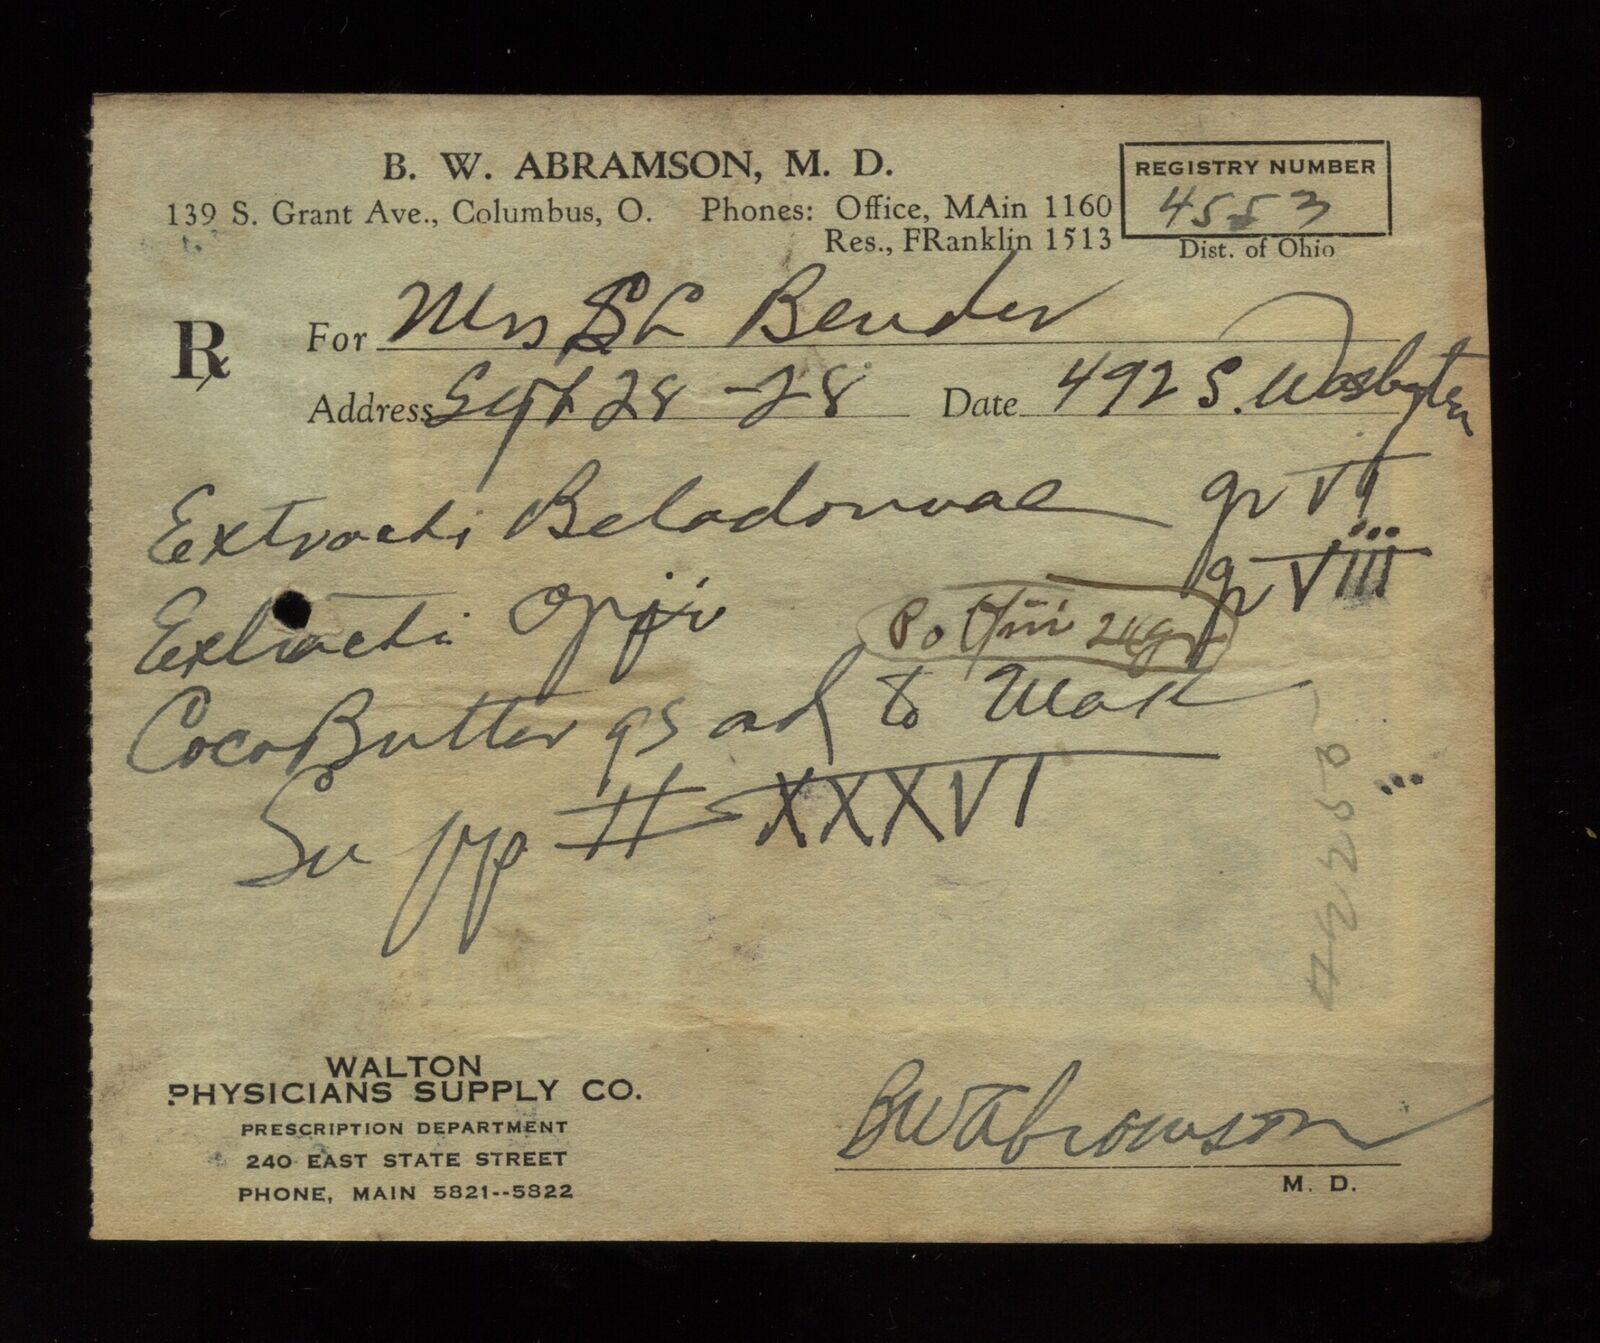 B. W. ABRAMSON, M. D.
139 S. Grant Ave., Columbus, O. Phones: Office, MAin 1160
Res., FRanklin 1513
REGISTRY NUMBER
4553
Dist. of Ohio
Rx
For Mrs S L Bender
Address Sept 28 - 28 Date 492 S. Washington
Extracti Beladonnae gr VI
Extracti Opii gr VIII
Po
Coco Butter qs ad to Make
Supp # XXXVI
WALTON
PHYSICIANS SUPPLY CO.
PRESCRIPTION DEPARTMENT
240 EAST STATE STREET
PHONE, MAIN 5821--5822
BW Abramson
M. D.